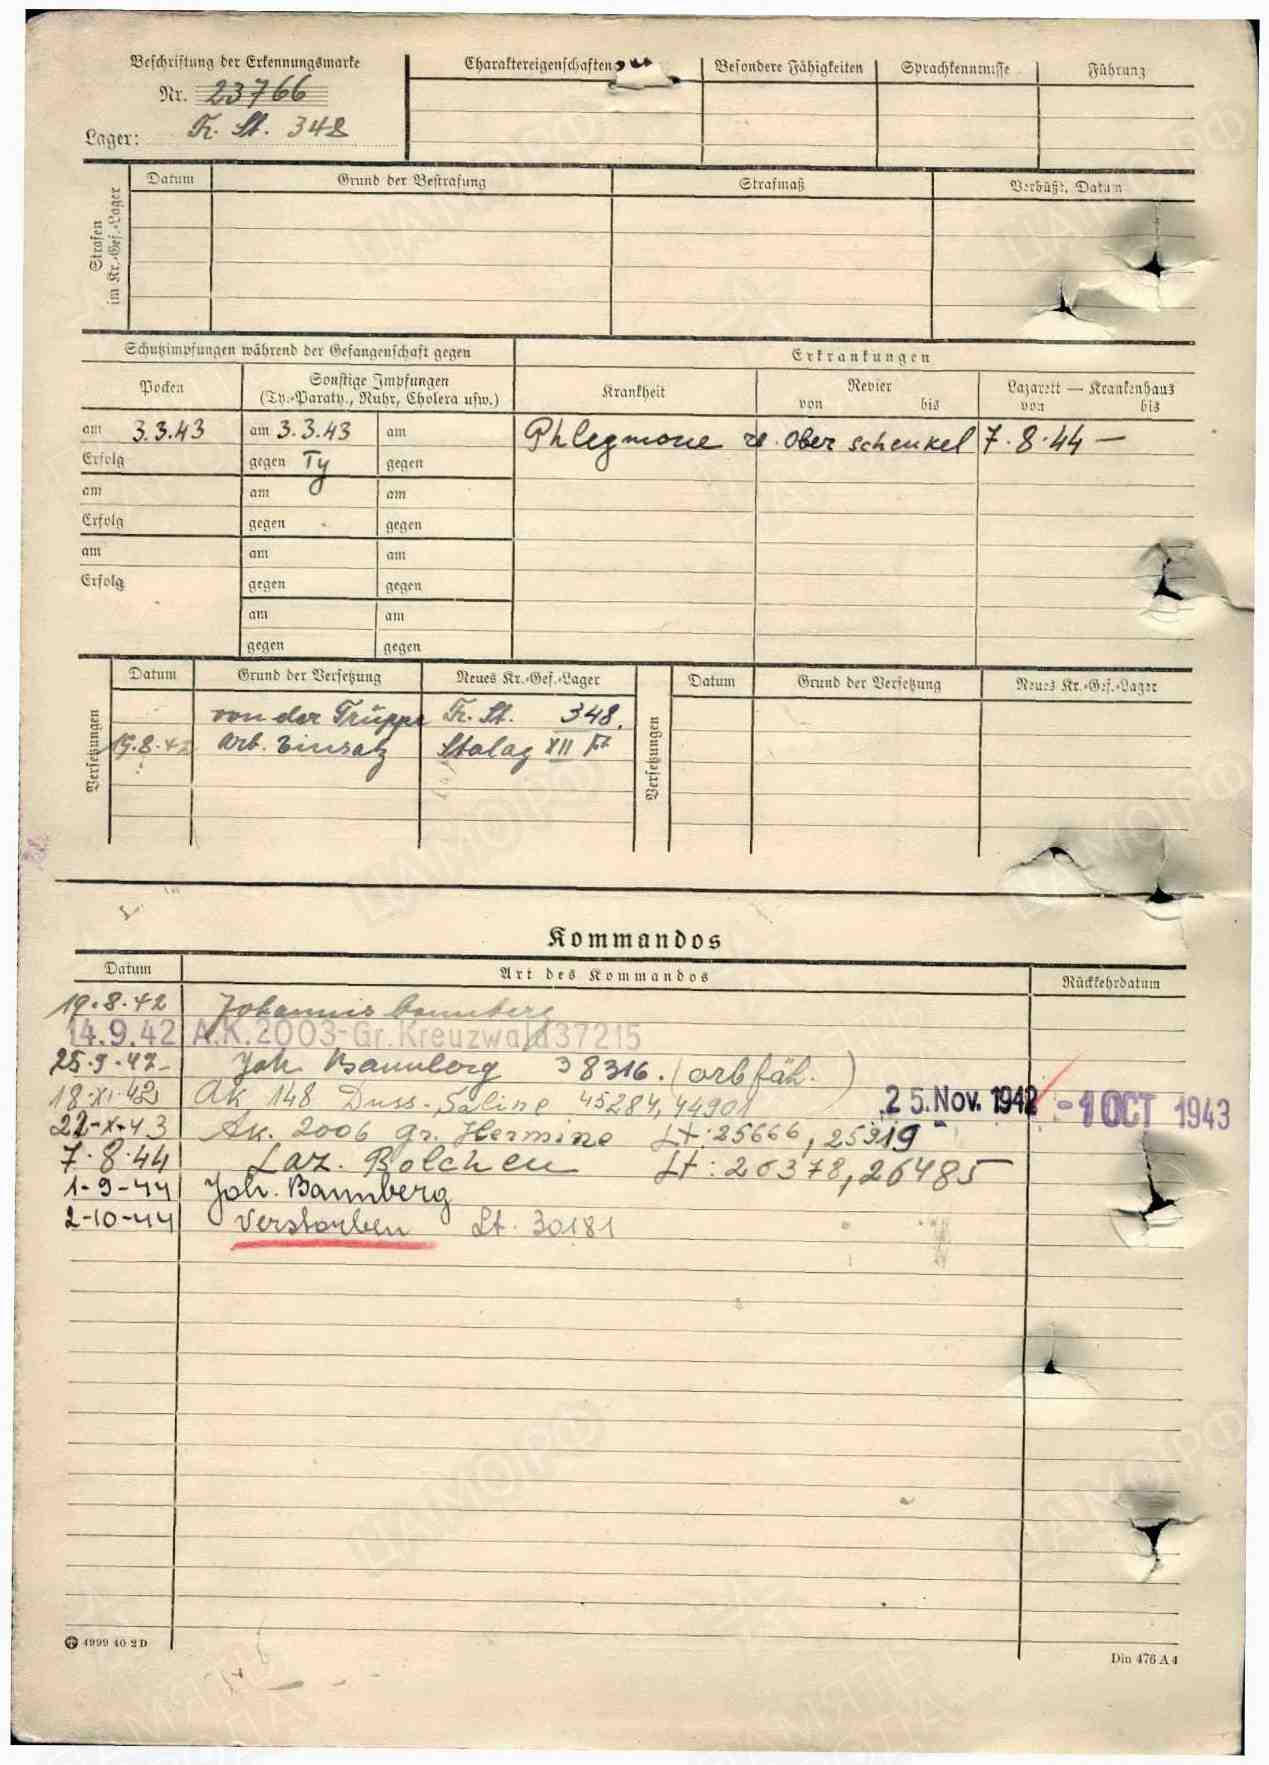 Beschriftung der Erkennungsmarke
Nr. 23766
Lager: Fr. St. 348
Charaktereigenschaften
Besondere Fähigkeiten
Sprachkenntnisse
Führung
Strafen im Kr.-Gef.-Lager
Datum
Grund der Bestrafung
Strafmaß
Verbüßt, Datum
Schutzimpfungen während der Gefangenschaft gegen
Erkrankungen
Pocken
Sonstige Impfungen
(Ty.-Paraty., Ruhr, Cholera usw.)
Krankheit
Revier
von bis
Lazarett — Krankenhaus
von bis
am 3.3.43 am 3.3.43 am
Phlegmone re. Oberschenkel 7.8.44 —
Erfolg gegen Ty gegen
am am am
Erfolg gegen gegen
am am am
Erfolg gegen gegen
am am
gegen gegen
Versetzungen
Datum Grund der Versetzung Neues Kr.-Gef.-Lager
von der Truppe Fr. St. 348.
19.8.42 Arb. Einsatz Stalag XII
Versetzungen
Datum Grund der Versetzung Neues Kr.-Gef.-Lager
Kommandos
Datum Art des Kommandos Rückkehrdatum
19.8.42 Johannis bannberg
14.9.42 A.K.2003-Gr.Kreuzwald 37215
25.9.42 Joh. Bannberg 38316. (arbfäh.)
18.XI.42 AK 148 Duss-Saline 45284, 44901 25. Nov. 1942 -1 OCT 1943
22-X-43 Ak. 2006 gr. Hermine Lt: 25666, 25919
7.8.44 Laz. Bolchen Lt: 26378, 26485
1-9-44 Joh. Bannberg
2-10-44 Verstorben Lt. 30181
4999 40 2D
Din 476 A4
ЦАМО РФ
ПАМЯТЬ